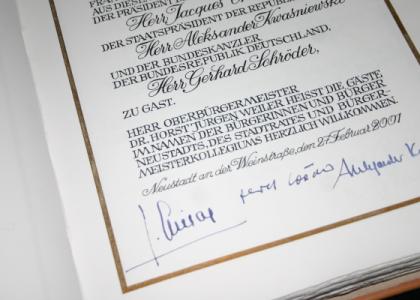 AUS DIESE
DER PRÄSIDENT
Herr Jacques
DER STAATSPRÄSIDENT DER REPUBLIK
Herr Aleksander Kwasniewski
UND DER BUNDESKANZLER
DER BUNDESREPUBLIK DEUTSCHLAND,
Herr Gerhard Schröder,
ZU GAST.
HERR OBERBÜRGERMEISTER
DR. HORST JÜRGEN WEILER HEISST DIE GÄSTE
IM NAMEN DER BÜRGERINNEN UND BÜRGER
NEUSTADTS, DES STADTRATES UND BÜRGER-
MEISTERKOLLEGIUMS HERZLICH WILLKOMMEN.
Neustadt an der Weinstraße, den 27. Februar 2001